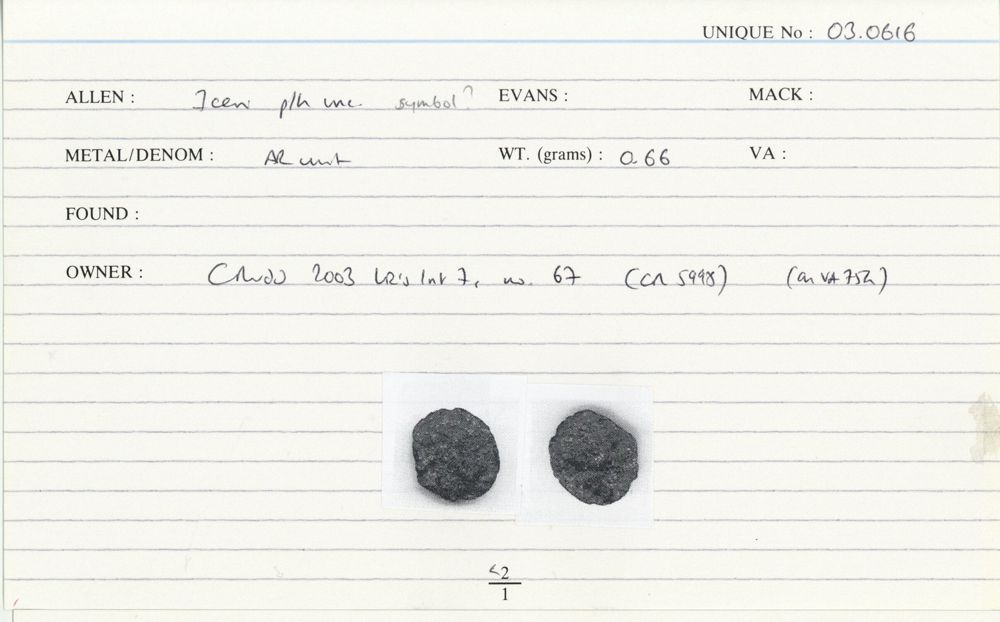 UNIQUE No : 03.0616
ALLEN : Iceni p/h unc. symbol? EVANS : MACK :
METAL/DENOM : AR unit WT. (grams) : 0.66 VA :
FOUND :
OWNER : 2003 no. 67 (CR 5998) 
<2
1